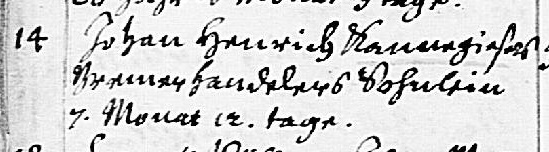 14 Johan Henrich Kannegiesers
Bremerhandelers Söhnlein
7. Monat 12. tage.